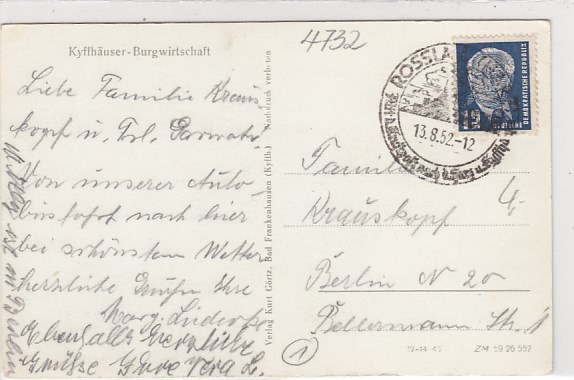 4732
Kyffhäuser-Burgwirtschaft
Liebe Familie Kraus
kopf u. Frl.
Von unserer Auto-
busfahrt nach hier
bei schönstem Wetter
herzliche Grüße Ihre
Marg.
Ebenfalls herzliche
Grüsse Eure Vera L.
ist in Berlin
Verlag Kurt Görtz, Bad Frankenhausen (Kyffh.) Nachdruck verboten
ROSSLA
13.8.52.-12
DEUTSCHE
DEMOKRATISCHE REPUBLIK
12
Familie
Krauskopf
4,-
Berlin N 20
Bellermann Str.
1
12-14-45
ZM 59 26 552